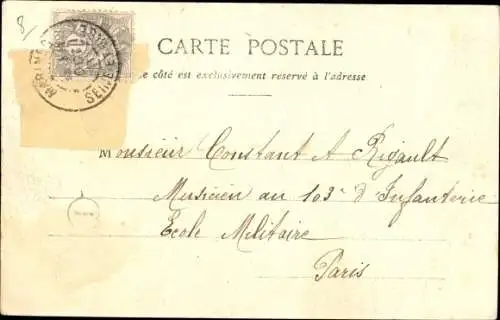 8/
CARTE POSTALE
Ce côté est exclusivement réservé à l'adresse
Monsieur Constant A Rigault
Musicien au 103e d'Infanterie
Ecole Militaire
Paris